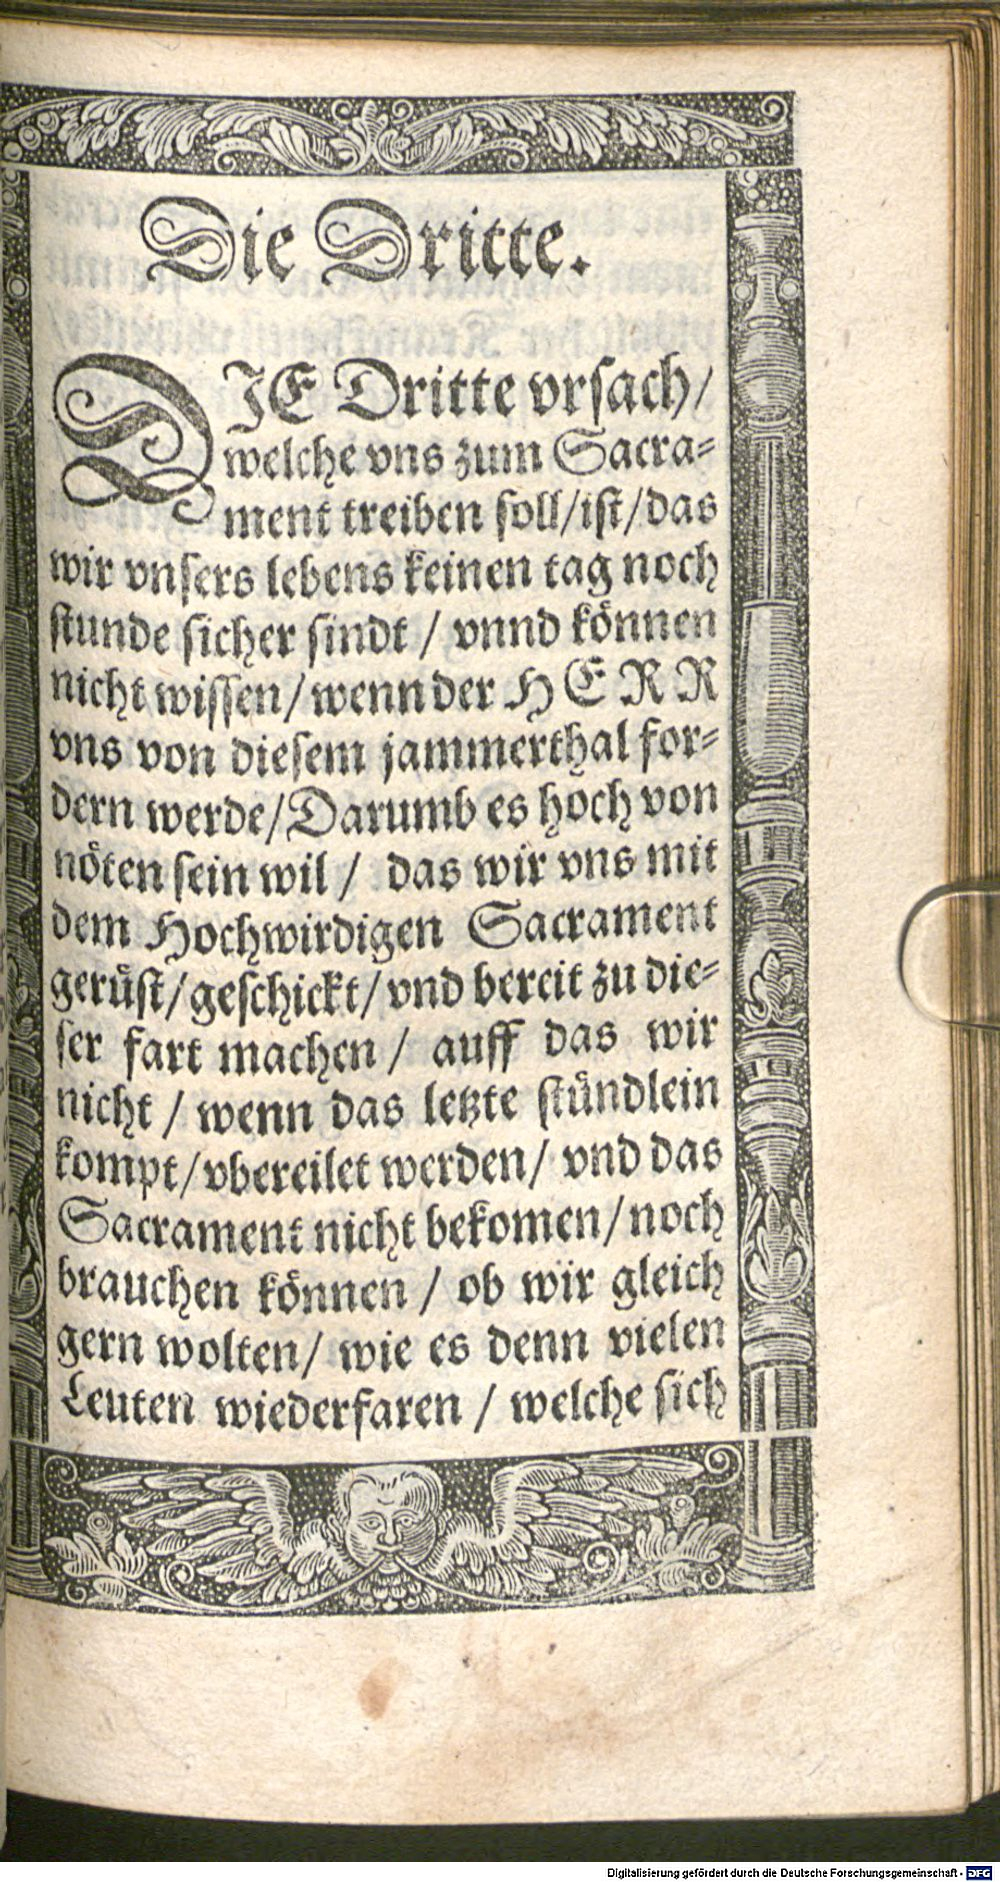 Die Dritte.
DIE Dritte vrsach/
welche vns zum Sacra-
ment treiben soll/ist/das
wir vnsers lebens keinen tag noch
stunde sicher sindt / vnnd können
nicht wissen/wenn der HERR
vns von diesem jammerthal for-
dern werde/Darumb es hoch von
nöten sein wil / das wir vns mit
dem Hochwirdigen Sacrament
gerüst/geschickt/vnd bereit zu die-
ser fart machen / auff das wir
nicht / wenn das letzte stündlein
kompt/vbereilet werden/ vnd das
Sacrament nicht bekomen/noch
brauchen können / ob wir gleich
gern wolten/ wie es denn vielen
Leuten wiederfaren / welche sich
Digitalisierung gefördert durch die Deutsche Forschungsgemeinschaft - DFG